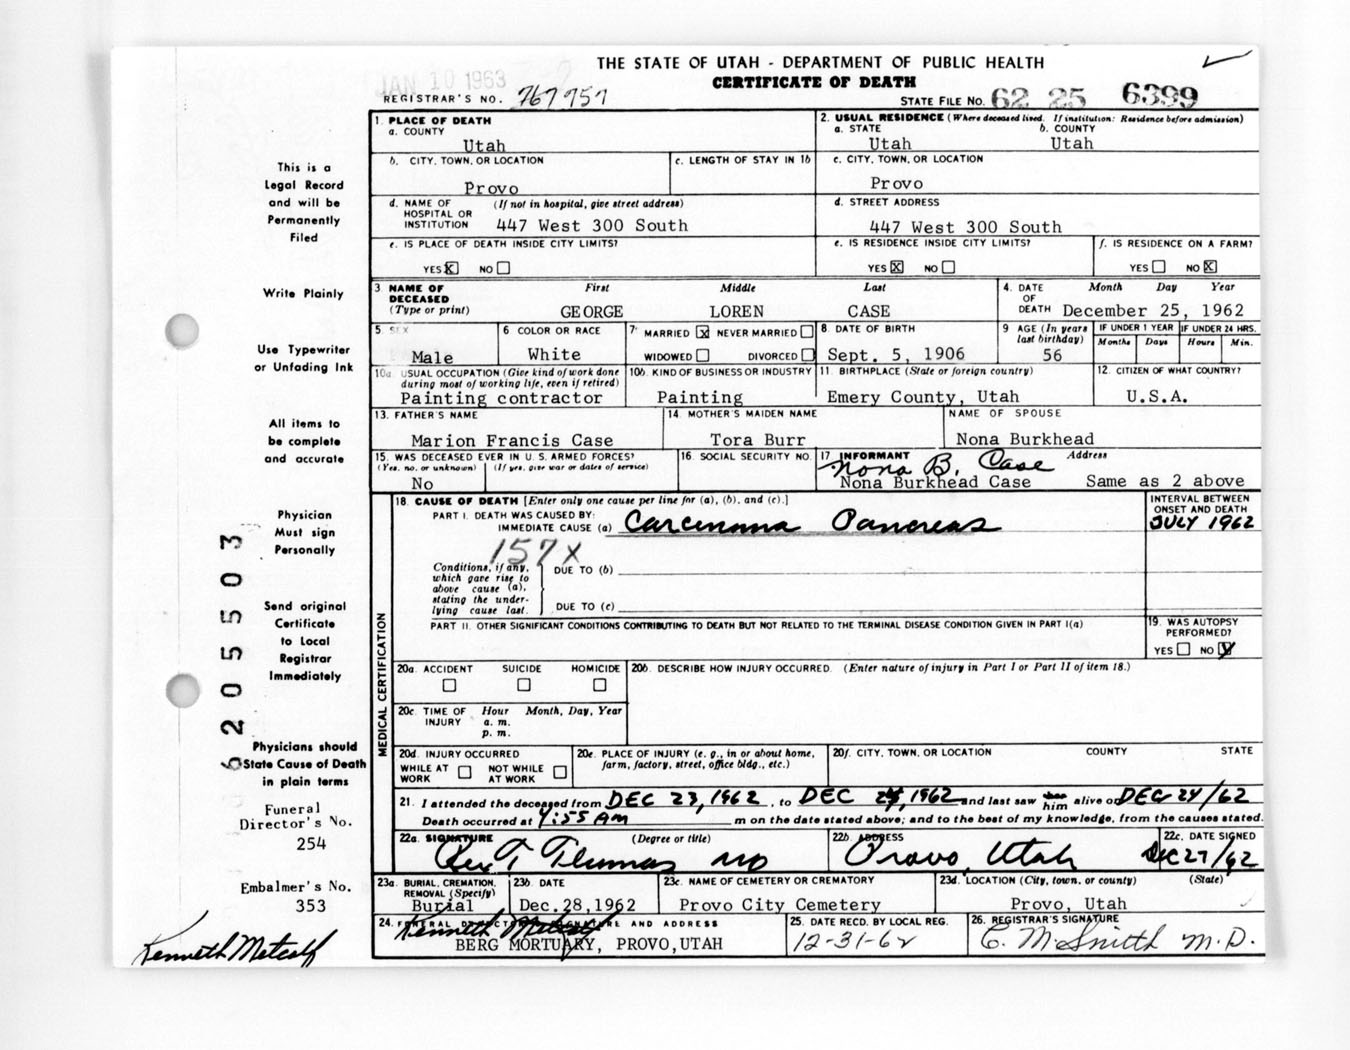 JAN 10 1963
THE STATE OF UTAH - DEPARTMENT OF PUBLIC HEALTH
CERTIFICATE OF DEATH
REGISTRAR'S NO. 767757
STATE FILE NO. 62 25 6399
This is a
Legal Record
and will be
Permanently
Filed
Write Plainly
Use Typewriter
or Unfading Ink
All items to
be complete
and accurate
Physician
Must sign
Personally
Send original
Certificate
to Local
Registrar
Immediately
Physicians should
State Cause of Death
in plain terms
Funeral
Director's No.
254
Embalmer's No.
353
Kenneth Metcalf
6205503
1. PLACE OF DEATH
a. COUNTY
Utah
2. USUAL RESIDENCE (Where deceased lived. If institution: Residence before admission)
a. STATE b. COUNTY
Utah Utah
b. CITY, TOWN, OR LOCATION c. LENGTH OF STAY IN 1b
Provo
c. CITY, TOWN, OR LOCATION
Provo
d. NAME OF (If not in hospital, give street address)
HOSPITAL OR
INSTITUTION 447 West 300 South
d. STREET ADDRESS
447 West 300 South
e. IS PLACE OF DEATH INSIDE CITY LIMITS?
YES X NO
e. IS RESIDENCE INSIDE CITY LIMITS?
YES X NO
f. IS RESIDENCE ON A FARM?
YES NO X
3 NAME OF First Middle Last
DECEASED
(Type or print) GEORGE LOREN CASE
4. DATE Month Day Year
OF
DEATH December 25, 1962
5 SEX
Male
6 COLOR OR RACE
White
7 MARRIED X NEVER MARRIED
WIDOWED DIVORCED
8 DATE OF BIRTH
Sept. 5, 1906
9 AGE (In years
last birthday)
56
IF UNDER 1 YEAR IF UNDER 24 HRS.
Months Days Hours Min.
10a USUAL OCCUPATION (Give kind of work done
during most of working life, even if retired)
Painting contractor
10b. KIND OF BUSINESS OR INDUSTRY
Painting
11. BIRTHPLACE (State or foreign country)
Emery County, Utah
12. CITIZEN OF WHAT COUNTRY?
U.S.A.
13. FATHER'S NAME
Marion Francis Case
14. MOTHER'S MAIDEN NAME
Tora Burr
NAME OF SPOUSE
Nona Burkhead
15. WAS DECEASED EVER IN U. S. ARMED FORCES?
(Yes, no, or unknown) (If yes, give war or dates of service)
No
16. SOCIAL SECURITY NO.
17 INFORMANT Address
Nona B. Case
Nona Burkhead Case Same as 2 above
MEDICAL CERTIFICATION
18. CAUSE OF DEATH [Enter only one cause per line for (a), (b), and (c).]
PART I. DEATH WAS CAUSED BY:
IMMEDIATE CAUSE (a) Carcinoma Pancreas
INTERVAL BETWEEN
ONSET AND DEATH
JULY 1962
157X
Conditions, if any,
which gave rise to
above cause (a),
stating the under-
lying cause last.
DUE TO (b)
DUE TO (c)
PART II. OTHER SIGNIFICANT CONDITIONS CONTRIBUTING TO DEATH BUT NOT RELATED TO THE TERMINAL DISEASE CONDITION GIVEN IN PART I(a)
19. WAS AUTOPSY
PERFORMED?
YES NO X
20a. ACCIDENT SUICIDE HOMICIDE
20b. DESCRIBE HOW INJURY OCCURRED. (Enter nature of injury in Part I or Part II of item 18.)
20c. TIME OF Hour Month, Day, Year
INJURY a. m.
p. m.
20d. INJURY OCCURRED
WHILE AT NOT WHILE
WORK AT WORK
20e. PLACE OF INJURY (e. g., in or about home,
farm, factory, street, office bldg., etc.)
20f. CITY, TOWN, OR LOCATION COUNTY STATE
21. I attended the deceased from DEC 23, 1962, to DEC 24, 1962 and last saw her him alive on DEC 24/62
Death occurred at 4:55 AM m on the date stated above; and to the best of my knowledge, from the causes stated.
22a. SIGNATURE (Degree or title)
Rex T Thomas MD
22b. ADDRESS
Provo, Utah
22c. DATE SIGNED
Dec 27/62
23a. BURIAL, CREMATION,
REMOVAL (Specify)
Burial
23b. DATE
Dec. 28, 1962
23c. NAME OF CEMETERY OR CREMATORY
Provo City Cemetery
23d. LOCATION (City, town, or county) (State)
Provo, Utah
24. FUNERAL DIRECTOR'S SIGNATURE AND ADDRESS
Kenneth Metcalf
BERG MORTUARY, PROVO, UTAH
25. DATE RECD. BY LOCAL REG.
12-31-62
26. REGISTRAR'S SIGNATURE
C. M Smith M.D.